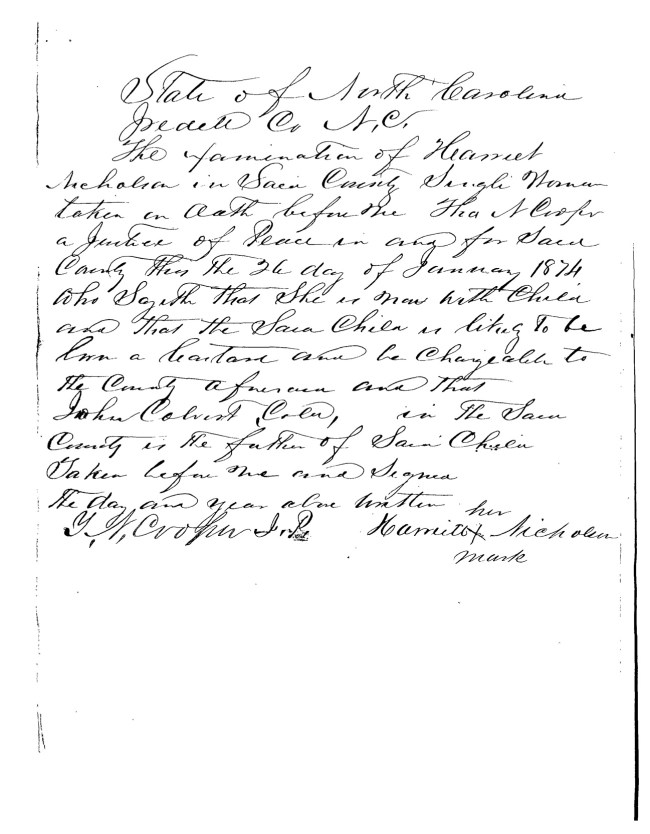 State of North Carolina
Iredell Co N.C.
The Examination of Harriet
Nicholson in Said County Single Woman
taken on Oath before me Tho N Cooper
a Justice of Peace in and for Said
County this the 26 day of January 1874
who Sayeth that She is now with Child
and that the Said Child is likely to be
born a bastard and be Chargeable to
the County aforesaid and that
John Colvert Cold, in the Said
County is the father of Said Child
Taken before me and Signed
the day and year above written her
T. N. Cooper J.P. Harriet X Nicholson
mark